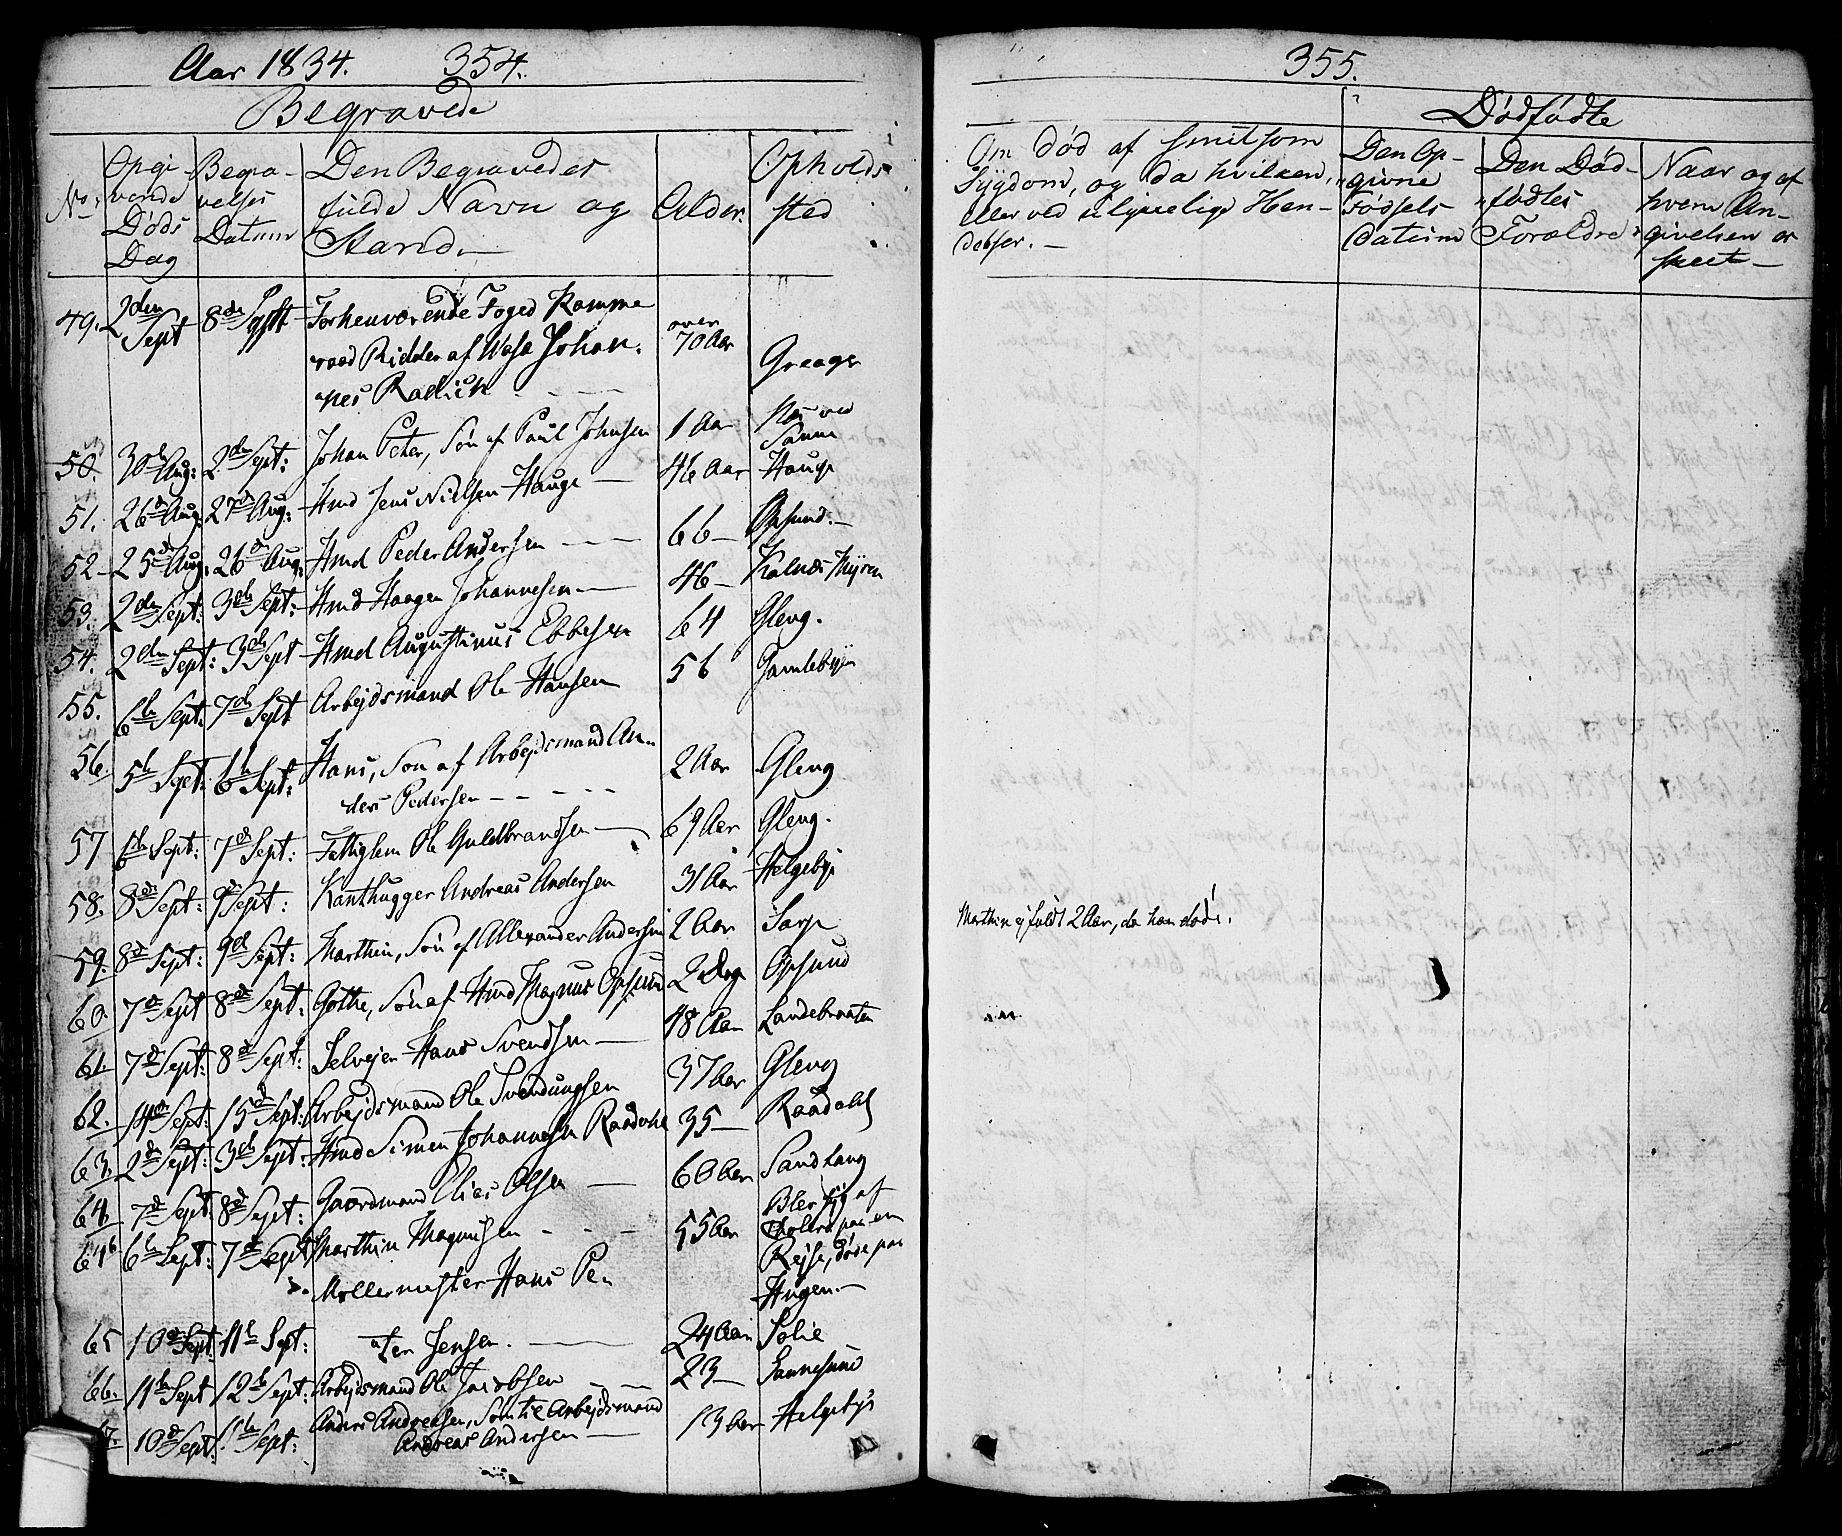 Aar 1834. 354.
Begravede
No. Opgivende Døds Dag Begravelses Datum Den Begravedes fulde Navn og Stand. Alder. Opholdssted
49. 2den Sept 8de Sept Forhenværende Foged Kamme
raad Ridder af Wasa Johan- over 70 Aar Greager
nes Radich
50. 30d Aug: 2den Sept: Johan Peter, Søn af Paul Johnsen 1 Aar Næs ved Sannes
51. 26d Aug: 27d Aug: Hmd Jens Nielsen Hauge 46 Aar Hauge
52 25d Aug: 26d Aug: Hmd Peder Andersen 66 Opsund.
53. 2den Sept: 3de Sept: Hmd Haagen Johannesen 46 Kalnæs Myren
54. 2den Sept: 3de Sept Hmd Augustinus Ebbesen 64 Gleng.
55. 6te Sept: 7de Sept Arbejdsmand Ole Hansen 56 Gamlebyen
56. 5te Sept: 6te Sept: Hans, Søn af Arbejdsmand An-
ders Pedersen 2 Aar Gleng
57 6te Sept: 7de Sept: Fattiglem Ole Guldbrandsen 69 Aar Gleng.
58. 8de Sept: 9de Sept: Kanthugger Andreas Andersen 31 Aar Helgeby
59. 8d Sept: 9d Sept: Marthin, Søn af Allexander Andersen 2 Aar Sarp
60. 7de Sept 8de Sept: Gothe, Søn af Hmd Magnus Opsund 2 Dage Opsund
61. 7de Sept: 8de Sept: Selvejer Hans Svendsen 48 Aar Landebraaten
62. 14de Sept: 15de Sept: Arbejdsmand Ole Svendungsen 37 Aar Gleng
63. 2de Sept: 3de Sept: Hmd Simen Johannesen Raadahl 35 Raadahl
64. 7de Sept 8de Sept: Gaardmand Elias Olsen 60 Aar Sandtang
64b 6te Sept: 7de Sept Marthin Magnusen 55 Aar Blev syg af
Cholera paa en
Rejse, døde paa
Haugen.
Møllermester Hans Pe
65 10de Sept 11te Sept: ter Jensen. 24 Aar Solie
66. 11te Sept 12te Sept: Arbejdsmand Ole Jacobsen 23 Sannesund
7. 10de Sept: 11te Sept: Anders Andreasen, Søn til Arbejdsmand
Andreas Andersen 13 Aar Helgeby
355.
Dødfødte
Om død af smitsom
Sygdom, og da hvilken,
eller ved ulykkelige Hen-
delser.
Den Op-
givne
Fødsels
Datum
Den Død-
fødtes
Forældre
Naar og af
hvem An-
givelsen er
skeet
Marthin ej fuldt 2 Aar, da han døde.